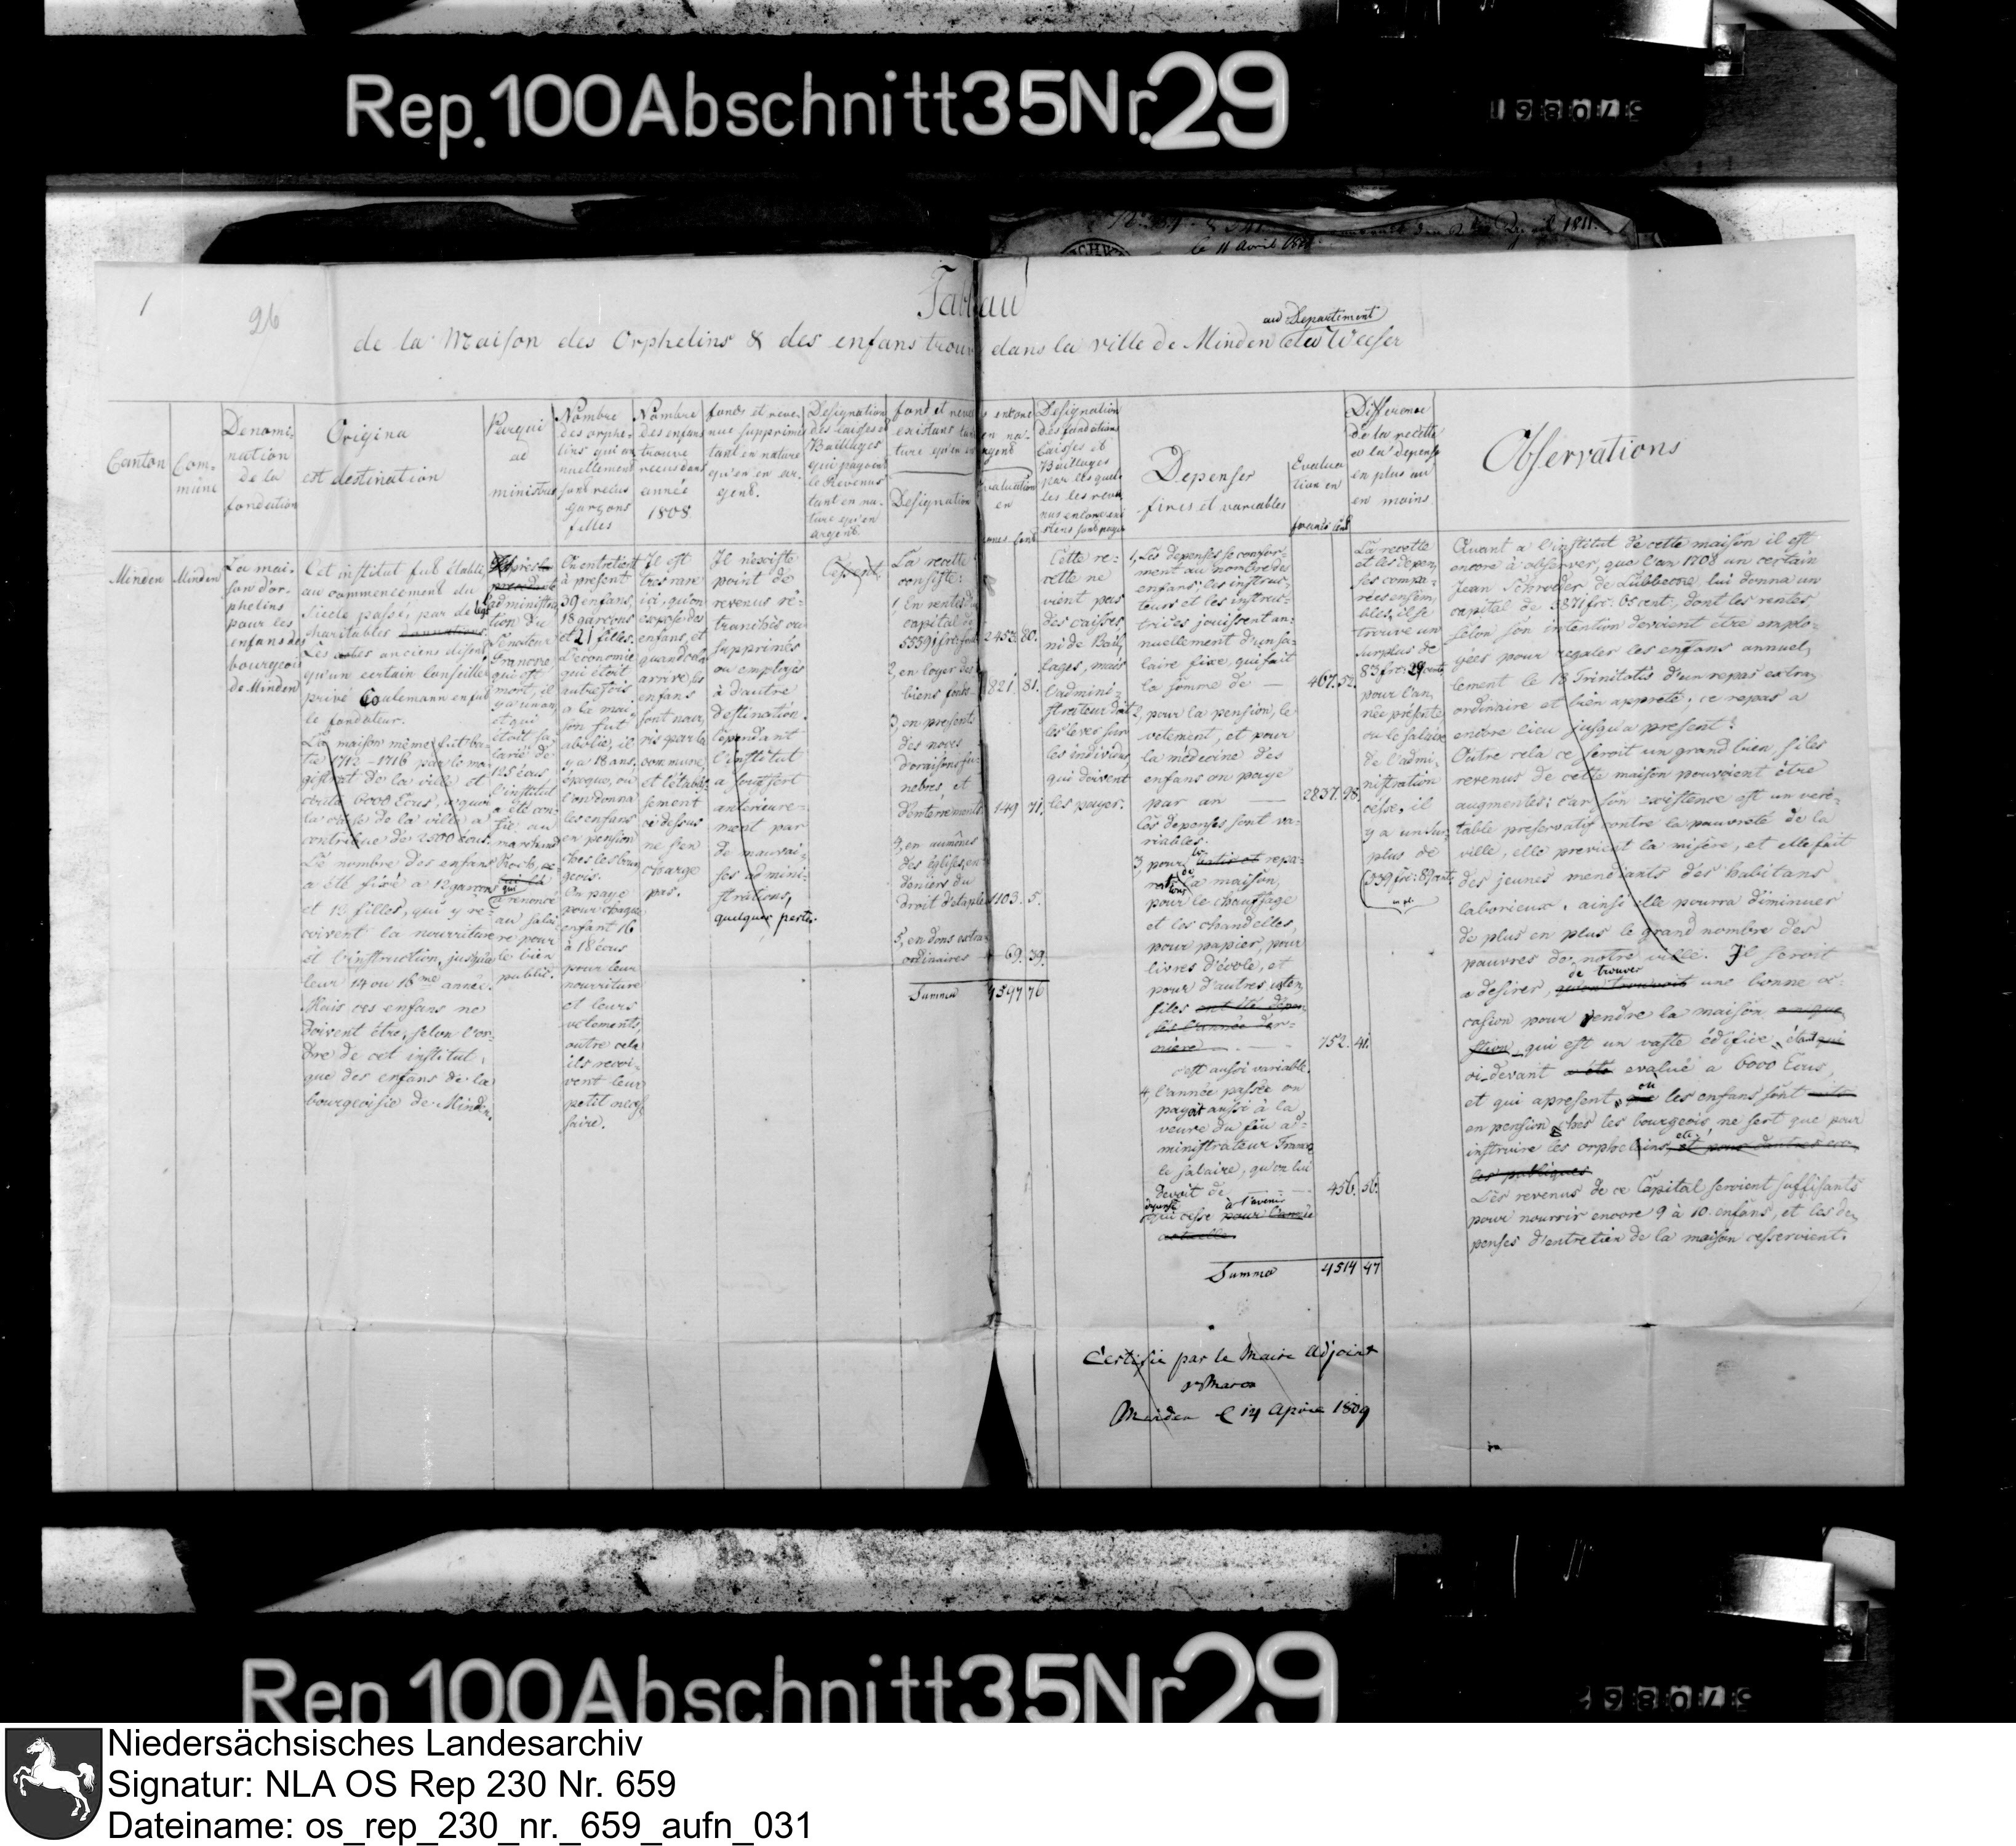 Rep. 100 Abschnitt 35 Nr. 29
le 11 Avril
1811.
1
26
Tableau
au Departement
de la Maison des Orphelins & des enfans trouv dans la ville de Minden Weser
Canton
Com-
mune
Denomi-
nation
de la
fondation
Origine
est destination
Nombre
des orphe-
lins qui an
nuellement
sont recus
garçons
filles
Nombre
des enfans
trouve
recus dans
année
1808
fonds et reve-
nue supprimés
tant en nature
qu'en en ar-
gent.
Designation
des caisses et
Bailliages
qui payent
le Revenus
tant en na-
ture qu'en
argent.
fond et reve
existans tant
ture qu'en
Designation
Evaluation
en
Designation
des fondations
Caisses et
Bailliages
par lesquel-
les les reve
nus encore exi
stens sont payés
Depenses
fixes et variables
Evalua
tion en
francs cent
Difference
de la recette
et la depense
en plus ou
en moins.
Observations
Minden
Minden
La mai-
son d'or-
phelins
pour les
enfans des
bourgeois
de Minden
Cet institut fut établi,
au commencement du
Siecle passé, par de legs
charitables donnations.
Les actes anciens disent
qu'un certain Conseiller
privé Coulemann en fut
le fondateur.
La maison même fut ba-
tie 1712 - 1716 par le ma-
gistrat de la ville et
couta 6000 Ecus, a quoi
la caisse de la ville a
contribué de 2500 ecus.
Le nombre des enfans
a été fixé a 12 garcons
et 12 filles, qui y re-
coivent la nourriture
et l'instruction, jusqu'à
leur 14 ou 16me année.
Mais ces enfans ne
doivent être, selon l'or-
dre de cet institut,
que des enfans de la
bourgeoisie de Minden.
administra
tion du
Senateur
Francke,
qui est
mort, il
y a un an,
et qui
étoit sa-
larié de
125 écus,
l'institut
a été con-
fié au
marchand
qui
a renoncé
au salai-
re pour
le bien
public.
On entretient
à present
39 enfans,
18 garcons
et 21 filles.
L'economie
qui étoit
autrefois
a la mai-
son fut
abolie, il
y a 18 ans,
époque, ou
l'on donna
les enfans
en pension
ches les bour-
geois.
On paye
pour chaque
enfant 16
à 18 écus
pour leur
nourriture
et leurs
vetements,
outre cela
ils recoi-
vent leur
petit neces
saire.
Il est
tres rare
ici, qu'on
expose des
enfans, et
quand cela
arrive, les
enfans
sont nour-
ris par la
commune,
et l'établis-
sement
ci dessus
ne s'en
charge
pas.
Il n'existe
point de
revenus re-
tranchés ou
supprimés
ou employés
à d'autre
destination.
Cependant
l'institut
a souffert
anterieure-
ment par
de mauvai-
ses admini-
strations,
quelques pertes.
La recette
consiste:
1, En rentes du
capital de
2453. 80.
2, en loyer des
biens fonds
821. 81.
3, en presents
des noces
d'oraisons fu-
nebres, et
d'enterrements
149 71.
4, en aumônes
des églises, en
deniers du
droit d'etaples
1103. 5.
5, en dons extra-
ordinaires
69. 39.
Summa 4597 76
Cette re-
cette ne
vient pas
des caisses
ni de Bail-
lages, mais
l'admini-
strateur doit
les lever sur
les individus
qui doivent
les payer.
1, Les depenses se confor-
ment au nombre des
enfans; les instruc-
teurs et les instruc-
trices jouissent an-
nuellement d'un sa-
laire fixe, qui fait
la somme de — 467. 52.
2, pour la pension, le
vetement, et pour
la médecine des
enfans on paye
par an — 2837. 98.
les depenses sont va-
riables.
3, pour batir et repa-
la maison,
pour le chauffage
et les chandelles,
pour papier, pour
livres d'école, et
pour d'autres usten-
siles ont été depen-
sés l'année der-
niere 752. 41.
c'est aussi variable.
4, l'année passée on
payat aussi à la
veuve du feu ad-
ministrateur Francke
le salaire, qu'on lui
devoit de 456. 56.
depense à l'avenir
qui cesse pour l'année
actuelle.
Summa 4514 47
La recette
et les depen-
ses compa-
rées ensem-
bles, il se
trouve un
surplus de
83 frc: 29 cent
pour l'an-
née présente
ou le salaire
de l'admi-
nistration
cesse, il
y a un sur-
plus de
539 frc: 89 cent.
Quant a l'institut de cette maison il est
encore à observer, que l'an 1708 un certain
Jean Schroeder de Lübbecke lui donna un
capital de 3871 frc. 05 cent:, dont les rentes,
selon son intention devoient être emplo-
yées pour regaler les enfans annuel-
lement le 18 Trinitatis d'un repas extra-
ordinaire et bien appreté; ce repas a
encore lieu jusqu'a present.
Outre cela ce seroit un grand bien, si les
revenus de cette maison pouvoient être
augmentés; car son existence est un veri-
table preservatif contre la pauvreté de la
ville, elle previent la misère, et elle fait
des jeunes mendiants des habitans
laborieux. ainsi elle pourra diminuer
de plus en plus le grand nombre des
pauvres de notre ville. Il seroit
de trouver
a desirer, qu'on trouvoit une bonne oc-
casion pour vendre la maison en que-
stion, qui est un vaste édifice, étant qui
ci-devant a été evalué a 6000 Ecus,
ou
et qui apresent, que les enfans sont
en pension ches les bourgeois, ne sert que pour
instruire les orphelins, et pour d'autres eco-
les publiques
Les revenus de ce Capital seroient suffisants
pour nourrir encore 9 à 10 enfans, et les de-
penses d'entretien de la maison cesseroient.
Certifié par le Maire Adjoint
Minden le 14 Avril 1809
Rep 100 Abschnitt 35 Nr 29
Niedersächsisches Landesarchiv
Signatur: NLA OS Rep 230 Nr. 659
Dateiname: os_rep_230_nr._659_aufn_031